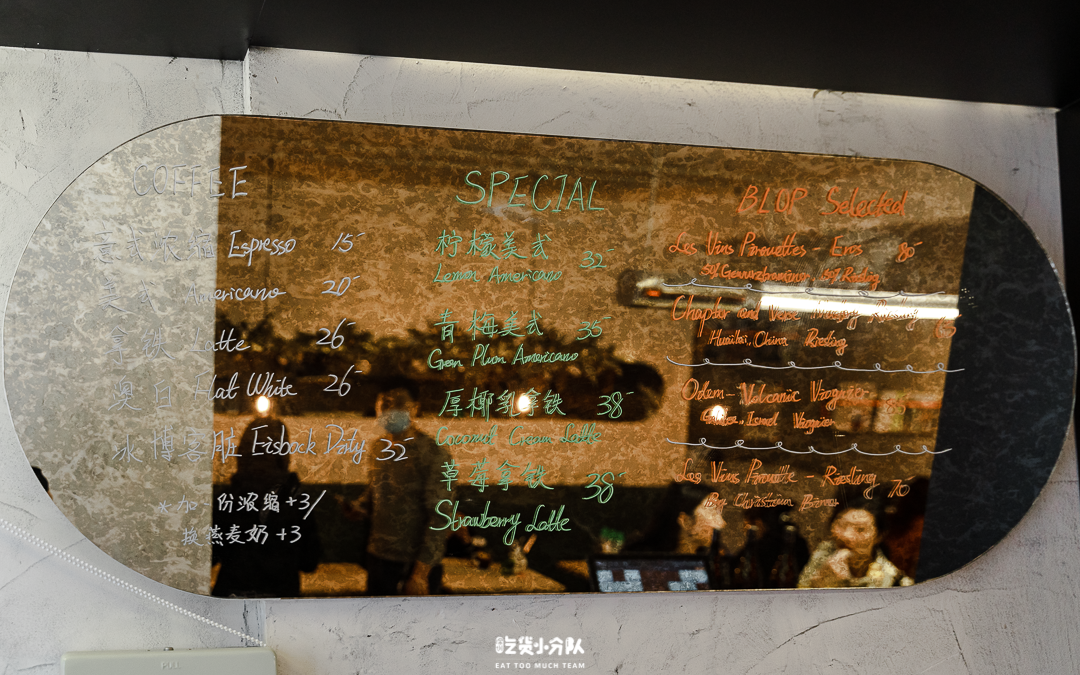 COFFEE
意式浓缩 Espresso 15
美式 Americano 20
拿铁 Latte 26
奥白 Flat White 26
冰博客脏 Eisbock Dirty 32
*加一份浓缩+3/
换燕麦奶+3
SPECIAL
柠檬美式 32
Lemon Americano
青梅美式 35
Green Plum Americano
厚椰乳拿铁 38
Coconut Cream Latte
草莓拿铁 38
Strawberry Latte
BLOP Selected
Les Vins Pirouettes - Eros 80
50% Gewurztraminer, 50% Riesling
Chapter and Verse
Huailai, China Riesling
Odem - Volcanic Viognier
Israel Viognier
Les Vins Pirouette - Riesling 70
By Christian
吃货小分队
EAT TOO MUCH TEAM